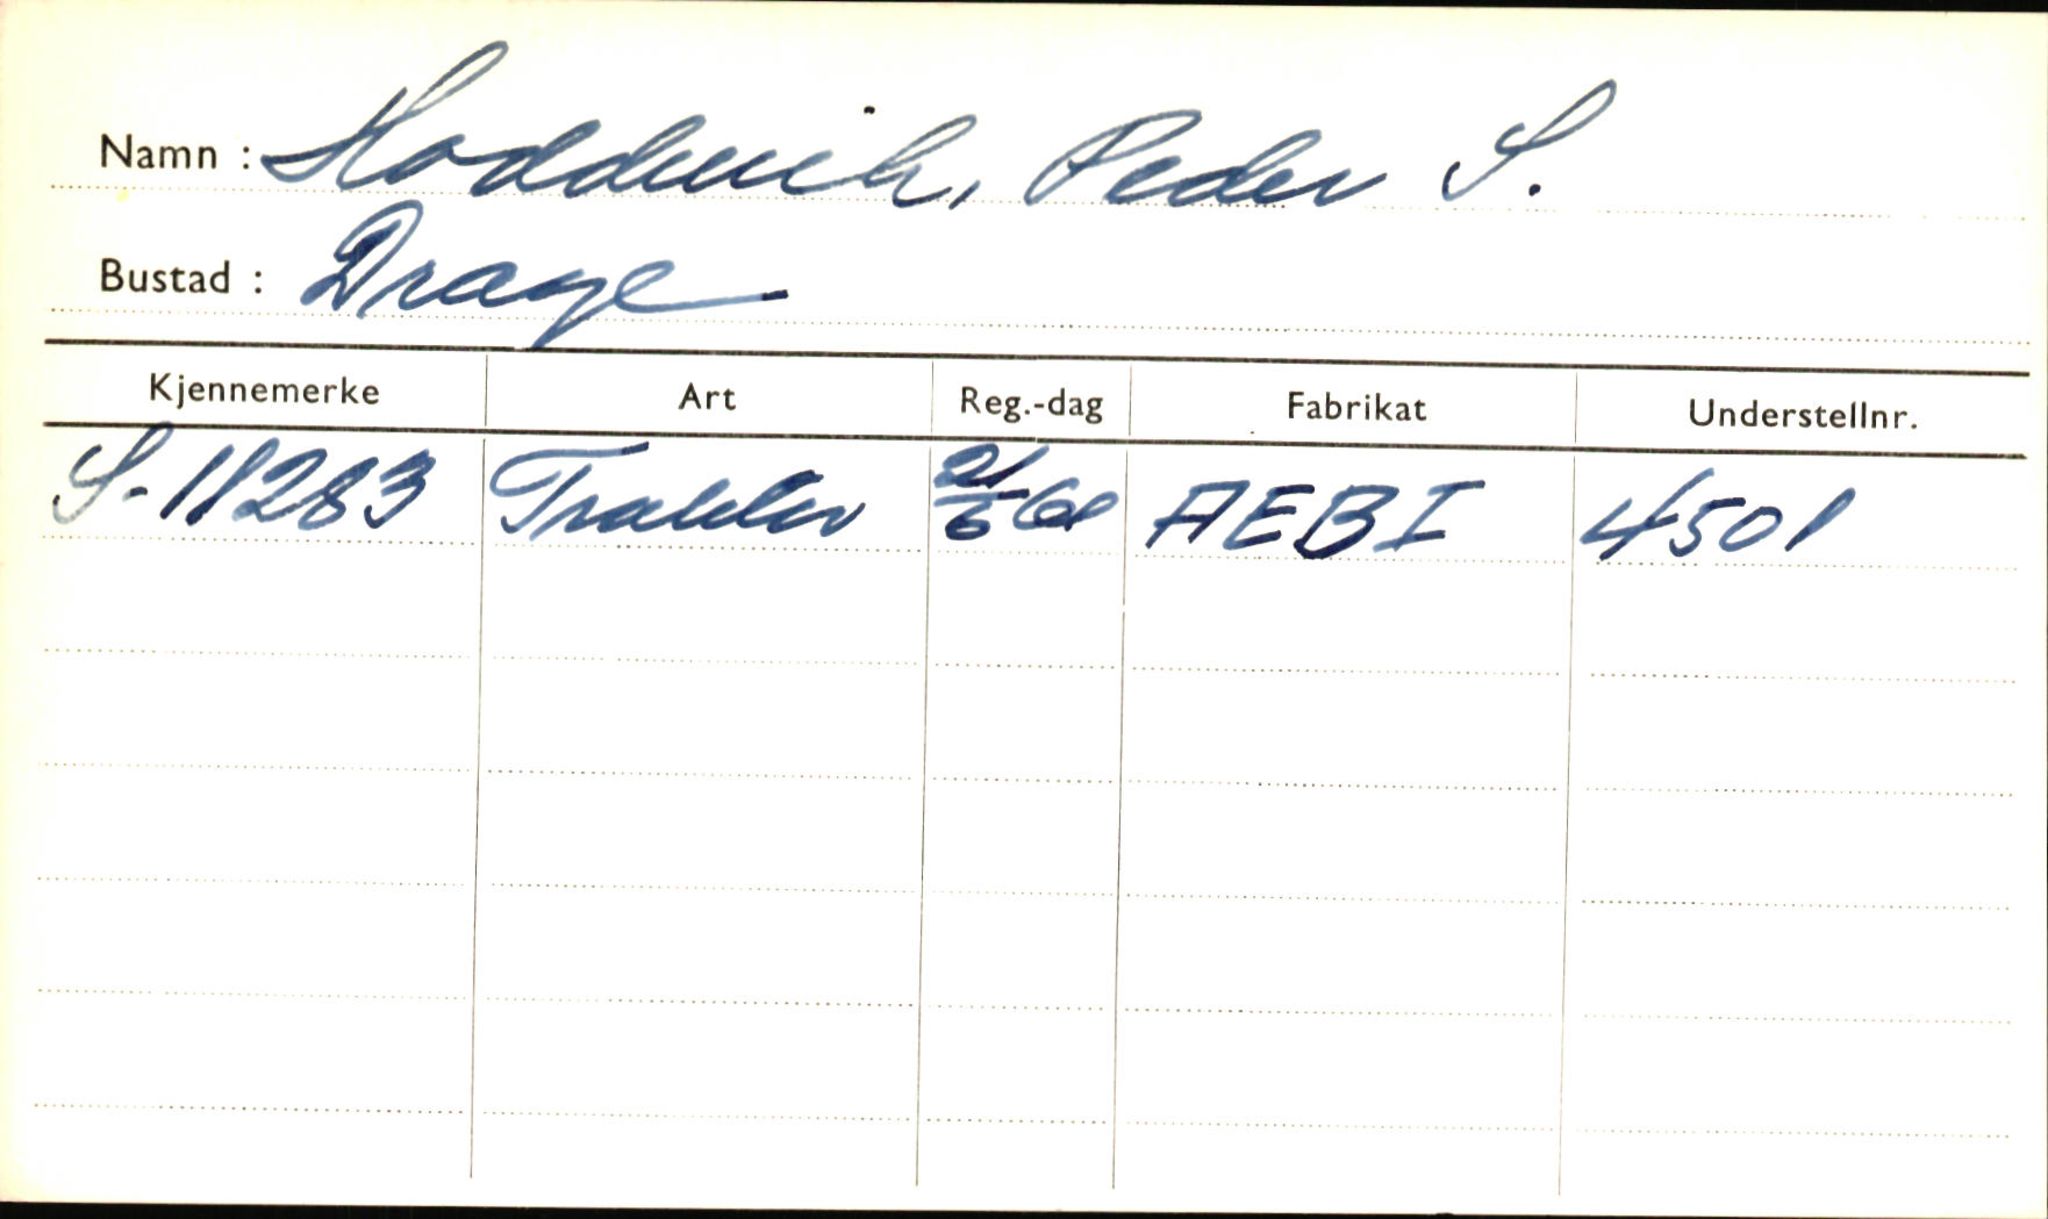 Namn : Hoddevik, Peder S.
Bustad : Drage
Kjennemerke Art Reg.-dag Fabrikat Understellnr.
S-11283 Traktor AEBI 4501